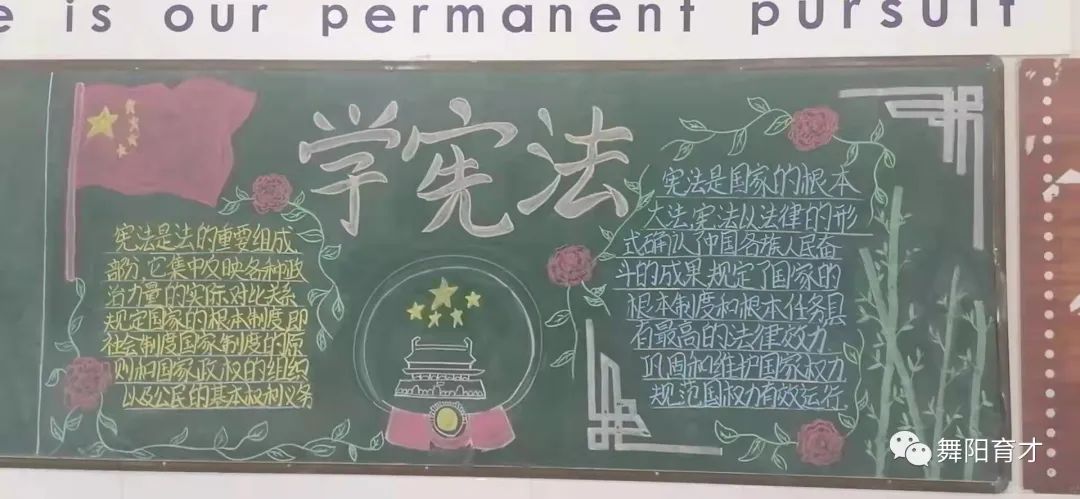 e is our permanent pursuit
学宪法
宪法是法的重要组成
部分,它集中反映各种政
治力量的实际对比关系
规定国家的根本制度即
社会制度国家制度的原
则和国家政权的组织
以及公民的基本权利义务
宪法是国家的根本
大法,宪法以法律的形
式确认了中国各族人民奋
斗的成果规定了国家的
根本制度和根本任务具
有最高的法律效力
巩固和维护国家权力
规范国权力有效运行
舞阳育才